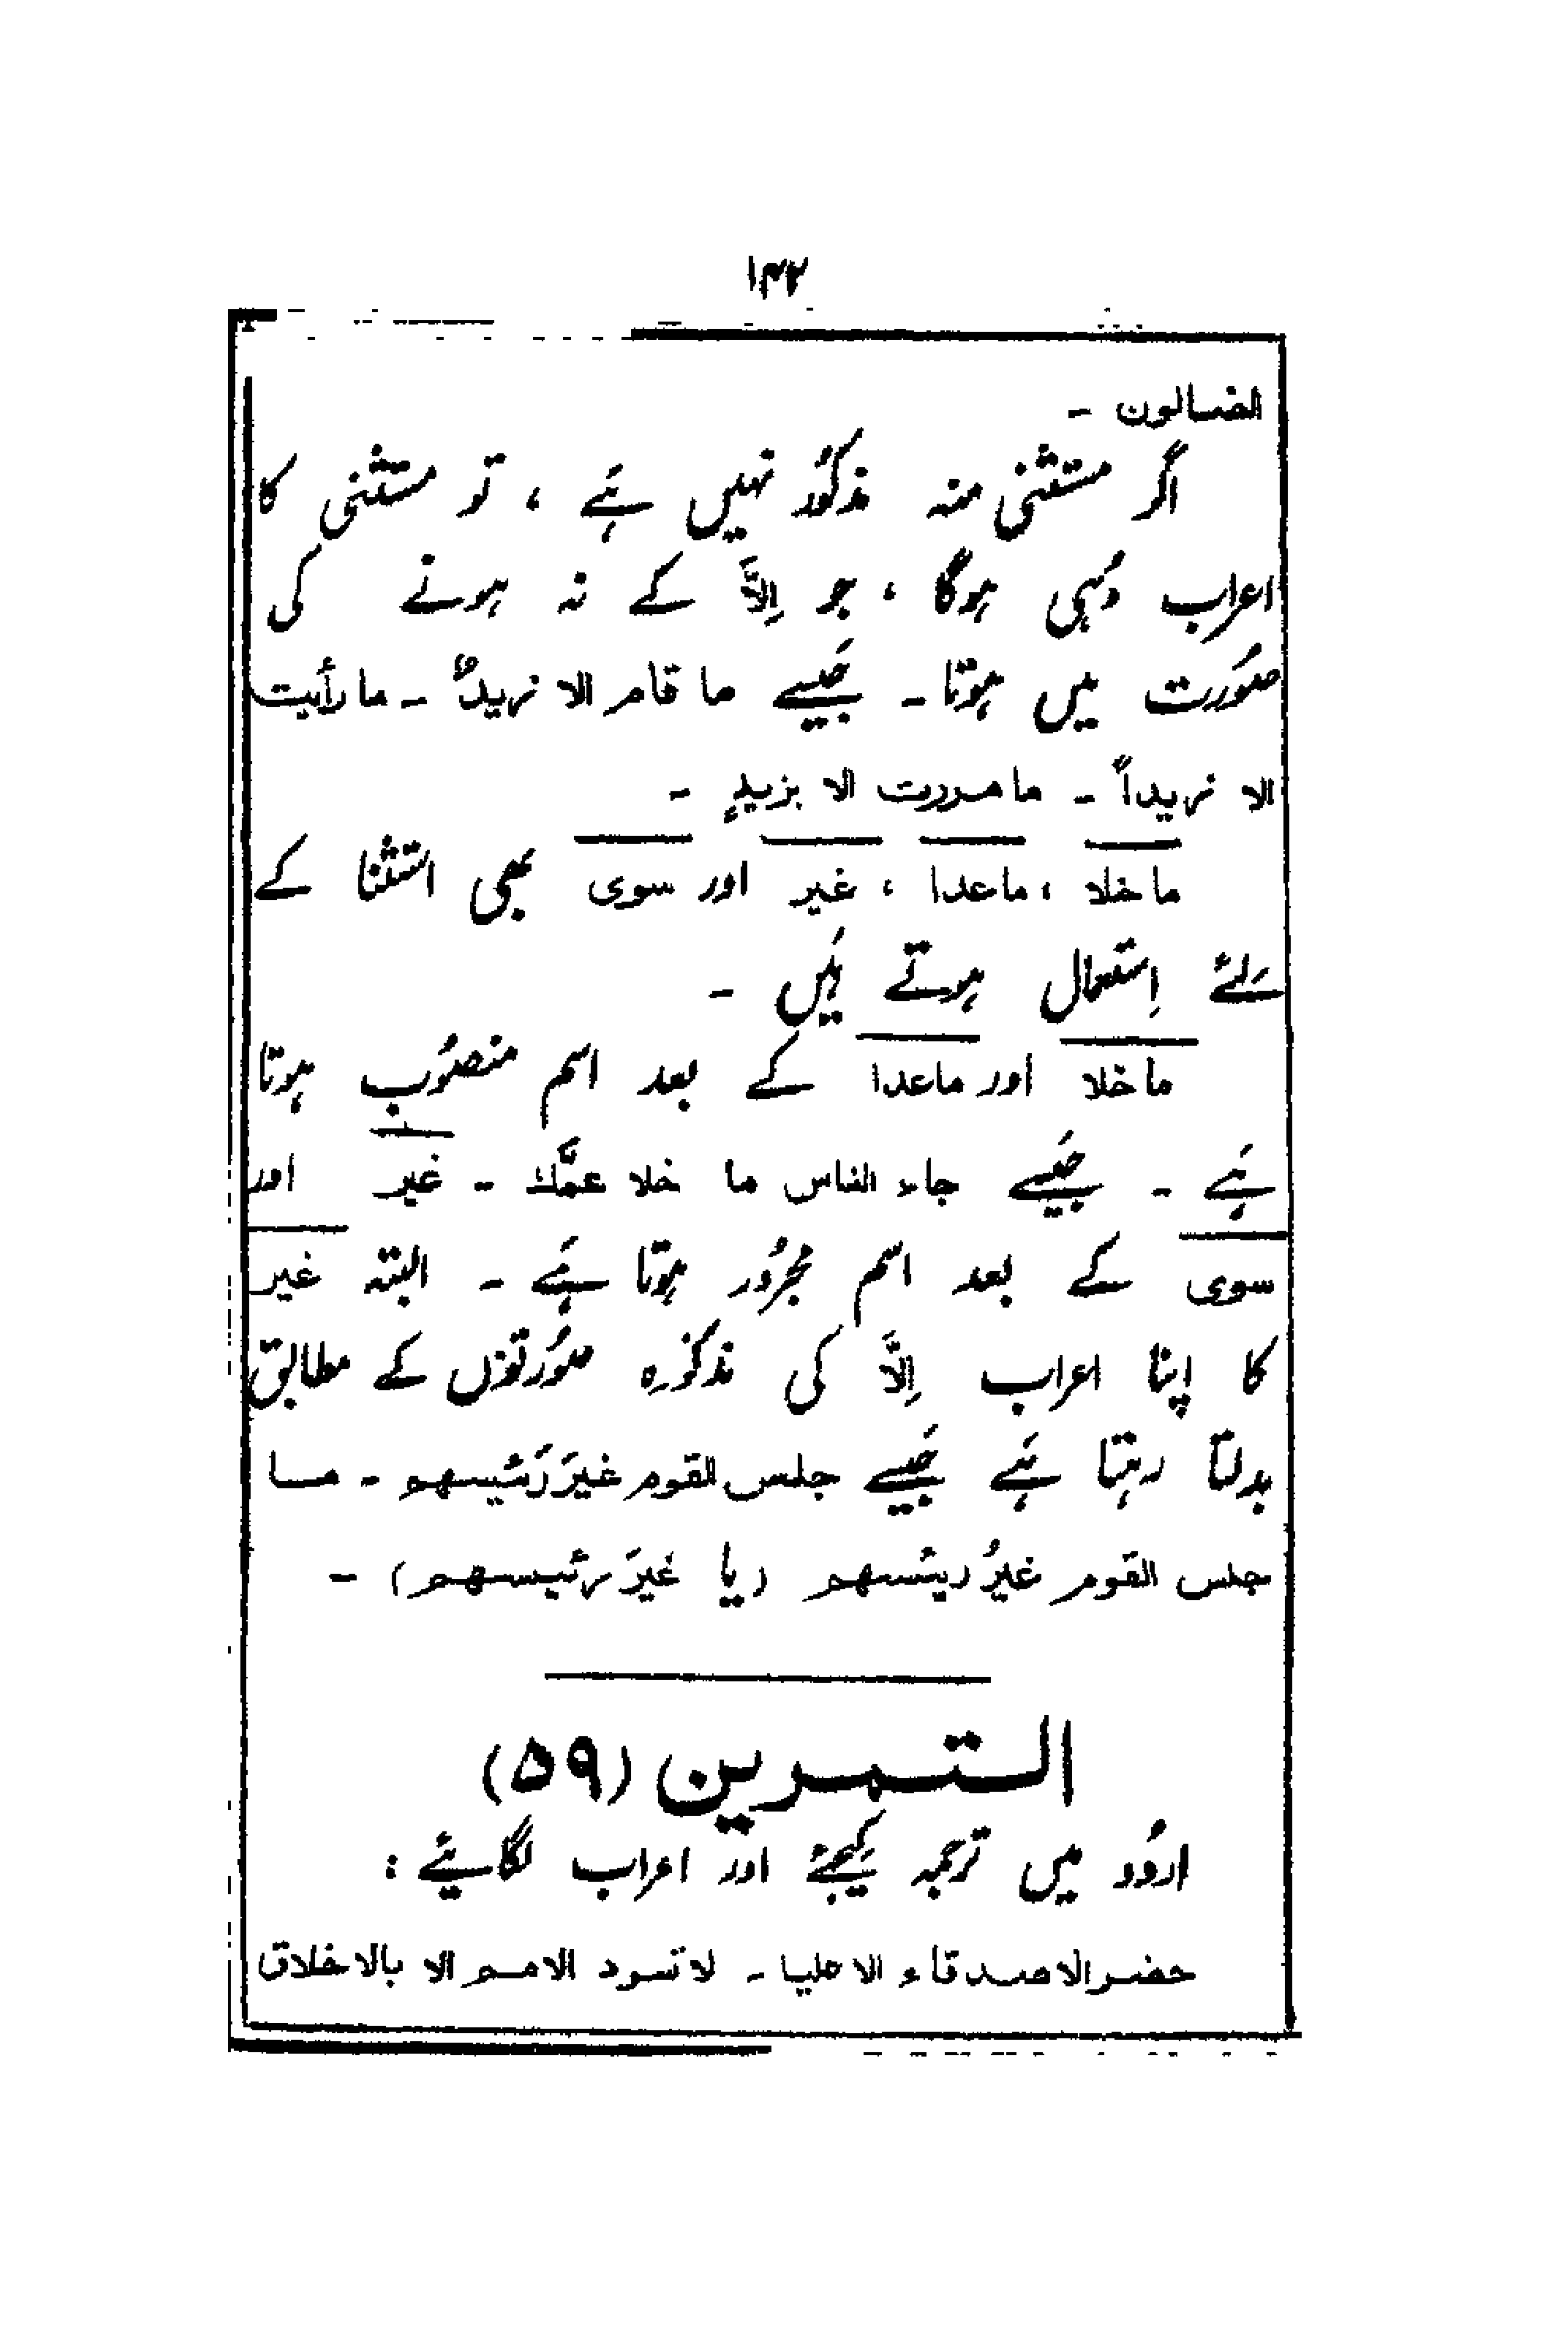 ۱۴۲
الضالون -
اگر مستثنٰی منہ مذکور نہیں ہَے ، تو مستثنٰی کا
اعراب وُہی ہوگا ، جو اِلاَّ کے نہ ہونے کی
صُورت میں ہوتا - جَیسے ما قام الا زیدٌ - ما رأیت
الا زیداً - ما مررت الا بزیدٍ -
ما خلا ، ما عدا ، غیر اور سوی بھی استثنا کے
لئے اِستعمال ہوتے ہَیں -
ما خلا اور ما عدا کے بعد اسم منصُوب ہوتا
ہَے - جَیسے جاء الناس ما خلا عمَّك - غیر اور
سوی کے بعد اسم مجرُور ہوتا ہَے - البتہ غیر
کا اپنا اعراب اِلاَّ کی مذکورہ صُورتوں کے مطابق
بدلتا رہتا ہَے جَیسے جلس القوم غیرَ رَئیسهم - ما
جلس القوم غیرُ ریئسهم (یا غیرَ رئیسهم) -
التمرین (۵۹)
اردُو میں ترجمہ کیجئے اور اعراب لگائیے :
حضر الاصدقاء الا علیا - لا تسود الامم الا بالاخلاق